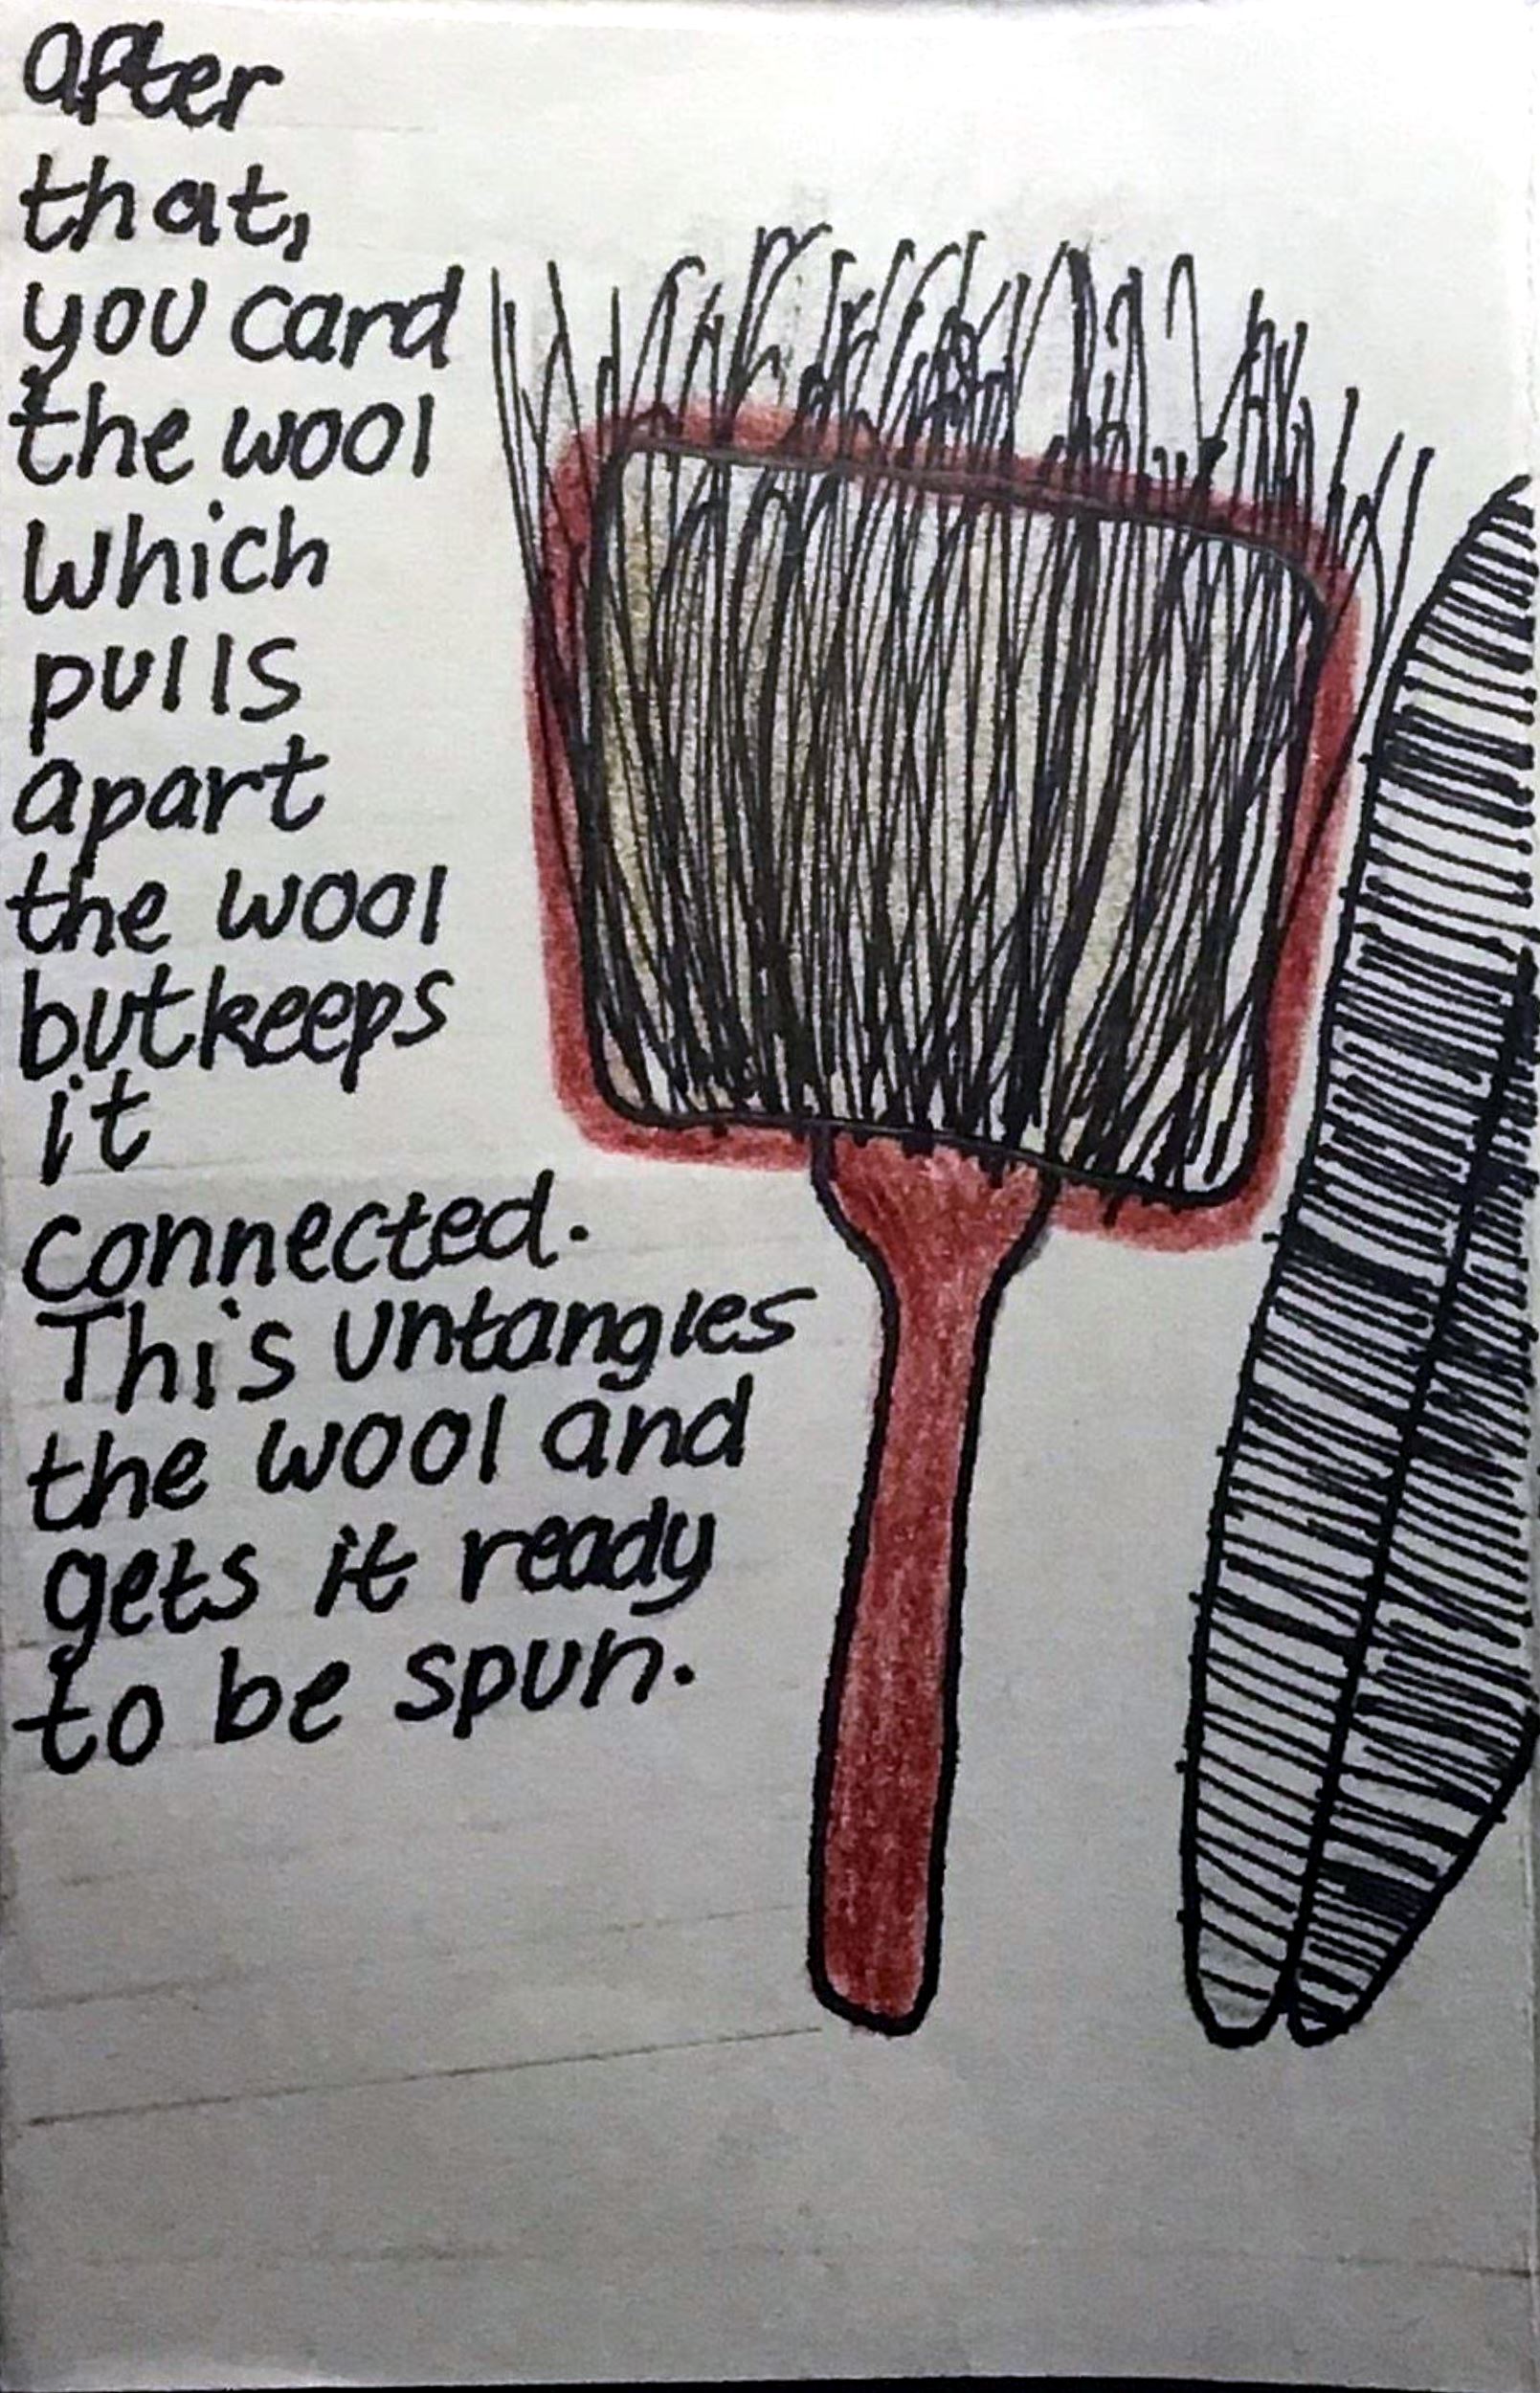 after
that,
you card
the wool
which
pulls
apart
the wool
but keeps
it
connected.
This untangles
the wool and
gets it ready
to be spun.